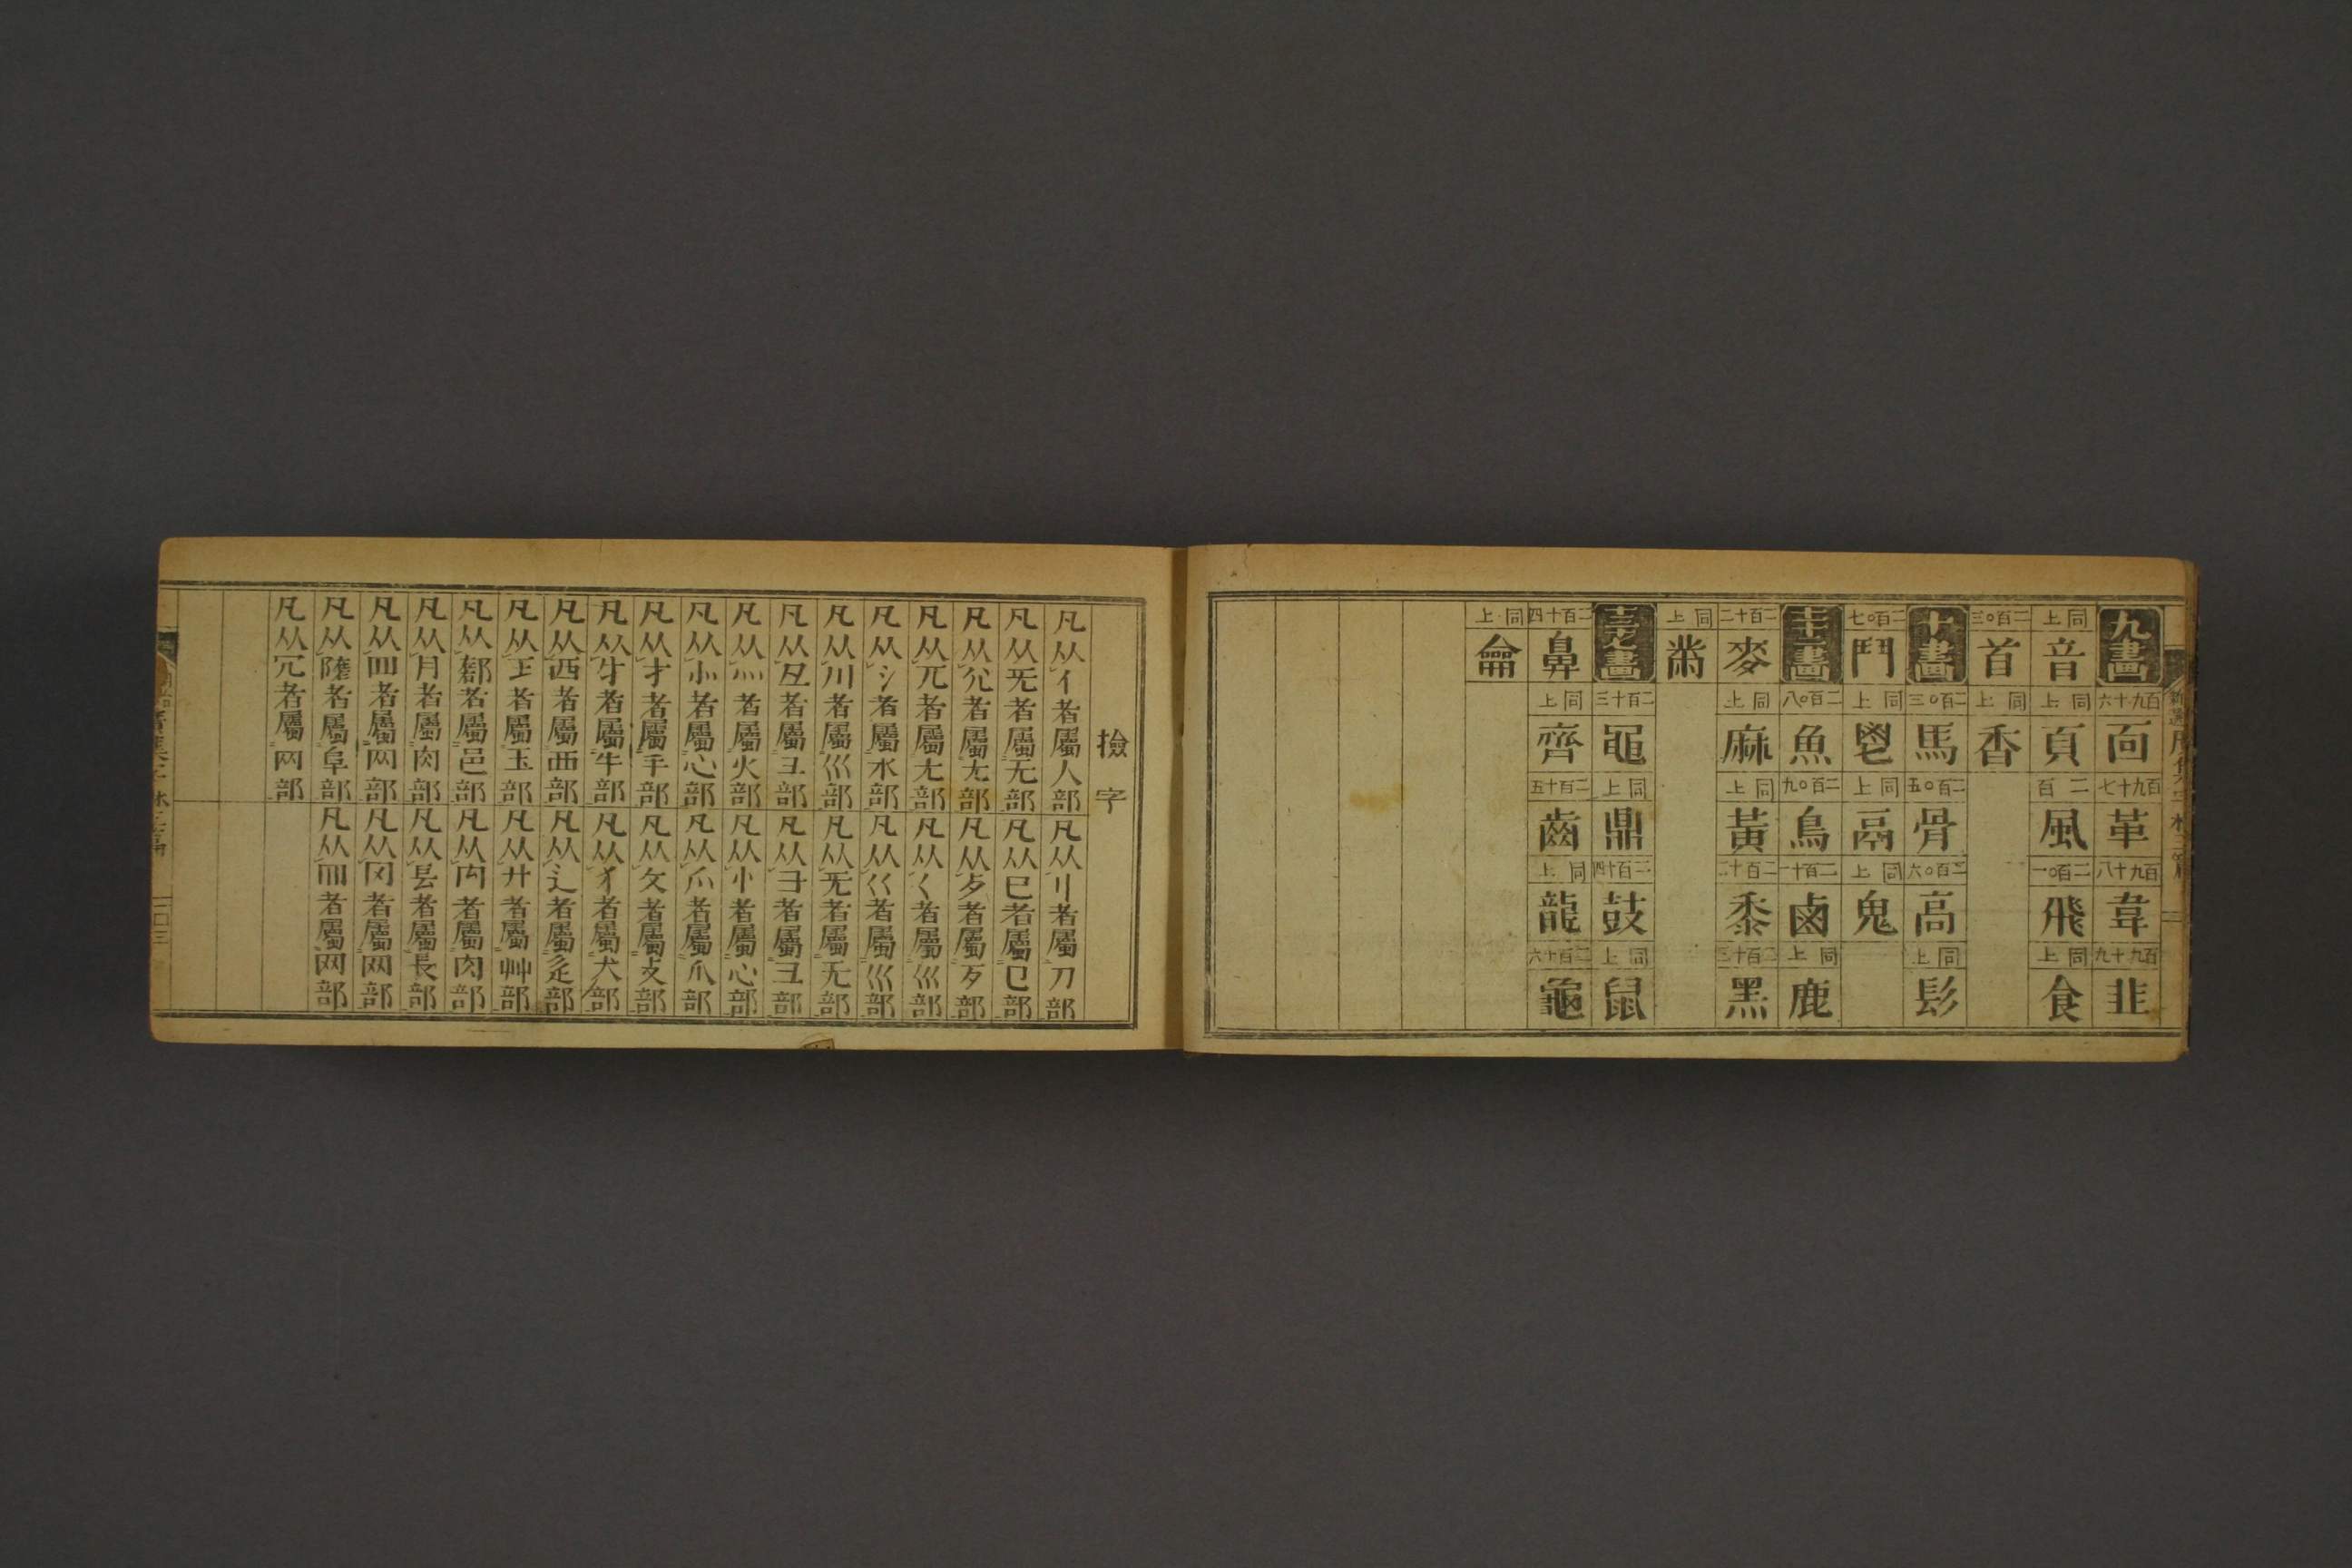 九畫
百九十六 面
百九十七 革
百九十八 韋
百九十九 韭
同上 音
同上 頁
二百 風
二百〇一 飛
同上 食
二百〇三 首
同上 香
十畫
二百〇三 馬
二百〇五 骨
二百〇六 高
同上 髟
二百〇七 鬥
同上 鬯
同上 鬲
同上 鬼
十一畫
二百〇八 魚
二百〇九 鳥
二百十一 鹵
同上 鹿
二百十二 麥
同上 麻
同上 黃
二百十二 黍
二百十三 黑
同上 黹
二百十三 黽
同上 鼎
二百十四 鼓
同上 鼠
二百十四 鼻
同上 齊
二百十五 齒
同上 龍
二百十六 龜
同上 龠
撿字
凡从亻者屬人部 凡从刂者屬刀部
凡从旡者屬无部 凡从巳者屬㔾部
凡从尣者屬尢部 凡从歺者屬歹部
凡从兀者屬尢部 凡从巜者屬巛部
凡从氵者屬水部 凡从巜者屬巛部
凡从川者屬巛部 凡从旡者屬无部
凡从彑者屬彐部 凡从彐者屬彐部
凡从灬者屬火部 凡从忄者屬心部
凡从㣺者屬心部 凡从爫者屬爪部
凡从扌者屬手部 凡从攵者屬攴部
凡从牜者屬牛部 凡从犭者屬犬部
凡从西者屬襾部 凡从辶者屬辵部
凡从王者屬玉部 凡从廾者屬艸部
凡从者屬邑部 凡从者屬肉部
凡从月者屬肉部 凡从镸者屬長部
凡从罒者屬网部 凡从者屬网部
凡从者屬阜部 凡从罒者屬网部
凡从者屬网部